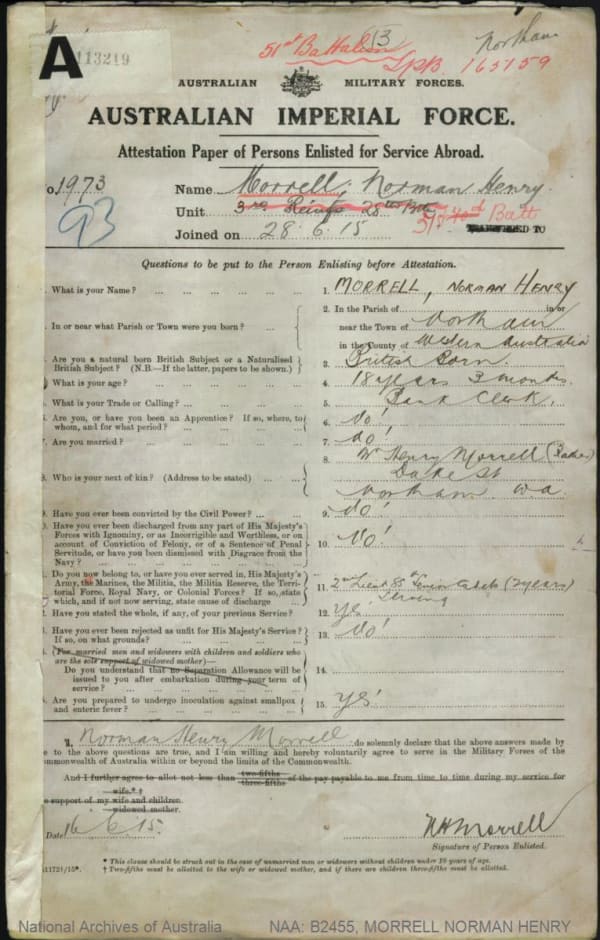 Northam
51st Battalion
13
A
113219
165159
AUSTRALIAN MILITARY FORCES.
AUSTRALIAN IMPERIAL FORCE.
Attestation Paper of Persons Enlisted for Service Abroad.
o. 1973
93
Name Morrell, Norman Henry.
Unit 3rd Reinfs 28th Bttn 51st Batt
TO
Joined on 28.6.15
Questions to be put to the Person Enlisting before Attestation.
What is your Name? ... 1. MORRELL, NORMAN HENRY
In or near what Parish or Town were you born? ... 2. In the Parish of in or
near the Town of Northam
in the County of Western Australia
Are you a natural born British Subject or a Naturalised
British Subject? (N.B.—If the latter, papers to be shown.) 3. British Born.
What is your age? ... 4. 18 years 3 months.
What is your Trade or Calling? ... 5. Bank Clerk.
Are you, or have you been an Apprentice? If so, where, to
whom, and for what period? ... 6. No!
Are you married? ... 7. No!
Who is your next of kin? (Address to be stated) ... 8. Mr Henry Morrell (Father)
Duke St
Northam. W.A.
Have you ever been convicted by the Civil Power? ... 9. No!
Have you ever been discharged from any part of His Majesty's
Forces with Ignominy, or as Incorrigible and Worthless, or on
account of Conviction of Felony, or of a Sentence of Penal
Servitude, or have you been dismissed with Disgrace from the
Navy? ... 10. No!
Do you now belong to, or have you ever served in, His Majesty's
Army, the Marines, the Militia, the Militia Reserve, the Terri-
torial Force, Royal Navy, or Colonial Forces? If so, state
which, and if not now serving, state cause of discharge 11. 2nd Lieut Senior Cadets (2 years)
Serving
Have you stated the whole, if any, of your previous Service? 12. Yes.
Have you ever been rejected as unfit for His Majesty's Service?
If so, on what grounds? ... 13. No!
(For married men and widowers with children and soldiers who
are the sole support of widowed mother)—
Do you understand that no Separation Allowance will be
issued to you after embarkation during your term of
service? ... 14.
Are you prepared to undergo inoculation against smallpox
and enteric fever? ... 15. Yes!
I, Norman Henry Morrell, do solemnly declare that the above answers made by
e to the above questions are true, and I am willing and hereby voluntarily agree to serve in the Military Forces of the
ommonwealth of Australia within or beyond the limits of the Commonwealth.
And I further agree to allot not less than two-fifths three-fifths of the pay payable to me from time to time during my service for
e support of my wife.*†
wife and children.
widowed mother.
Date 16.6.15.
NHMorrell
Signature of Person Enlisted.
* This clause should be struck out in the case of unmarried men or widowers without children under 18 years of age.
11721/15*. † Two-fifths must be allotted to the wife or widowed mother, and if there are children three-fifths must be allotted.
National Archives of Australia NAA: B2455, MORRELL NORMAN HENRY